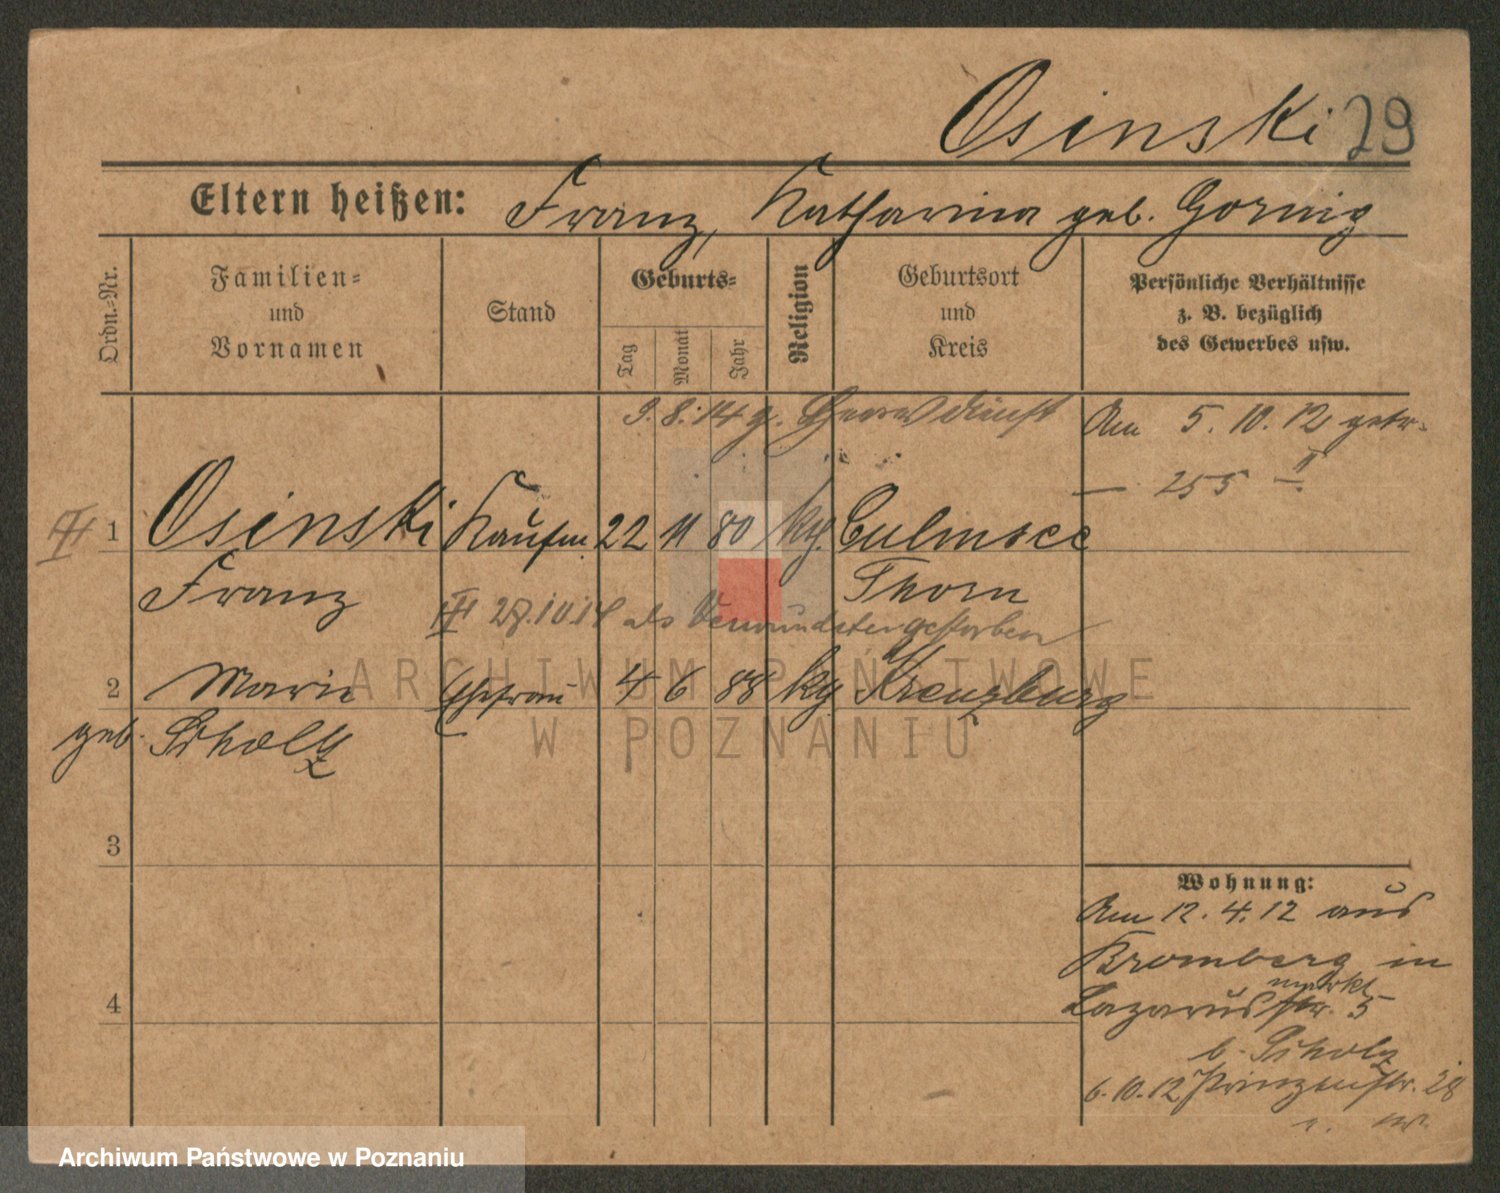 Osinski 29
Eltern heißen: Franz, Katharina geb. Gornig
Ordn.-Nr.
Familien-
und
Vornamen
Stand
Geburts-
Tag
Monat
Jahr
Religion
Geburtsort
und
Kreis
Persönliche Verhältnisse
z. B. bezüglich
des Gewerbes usw.
9.8.14 z. Heeresdienst
Am 5.10.12 getr.
– 255 II –
III 1 Osinski Kaufm 22 11 80 kg. Culmsee
Franz Thorn
III 27.10.14 als Verwundeter gestorben
2 Marie Ehefrau 4 6 88 kg Kreuzburg
geb. Scholz
3
4
Wohnung:
Am 12.4.12 aus
Bromberg in
markt
Lazarusstr. 5
b. Scholz
6.10.12 Prinzenstr. 28
ARCHIWUM PAŃSTWOWE
W POZNANIU
Archiwum Państwowe w Poznaniu